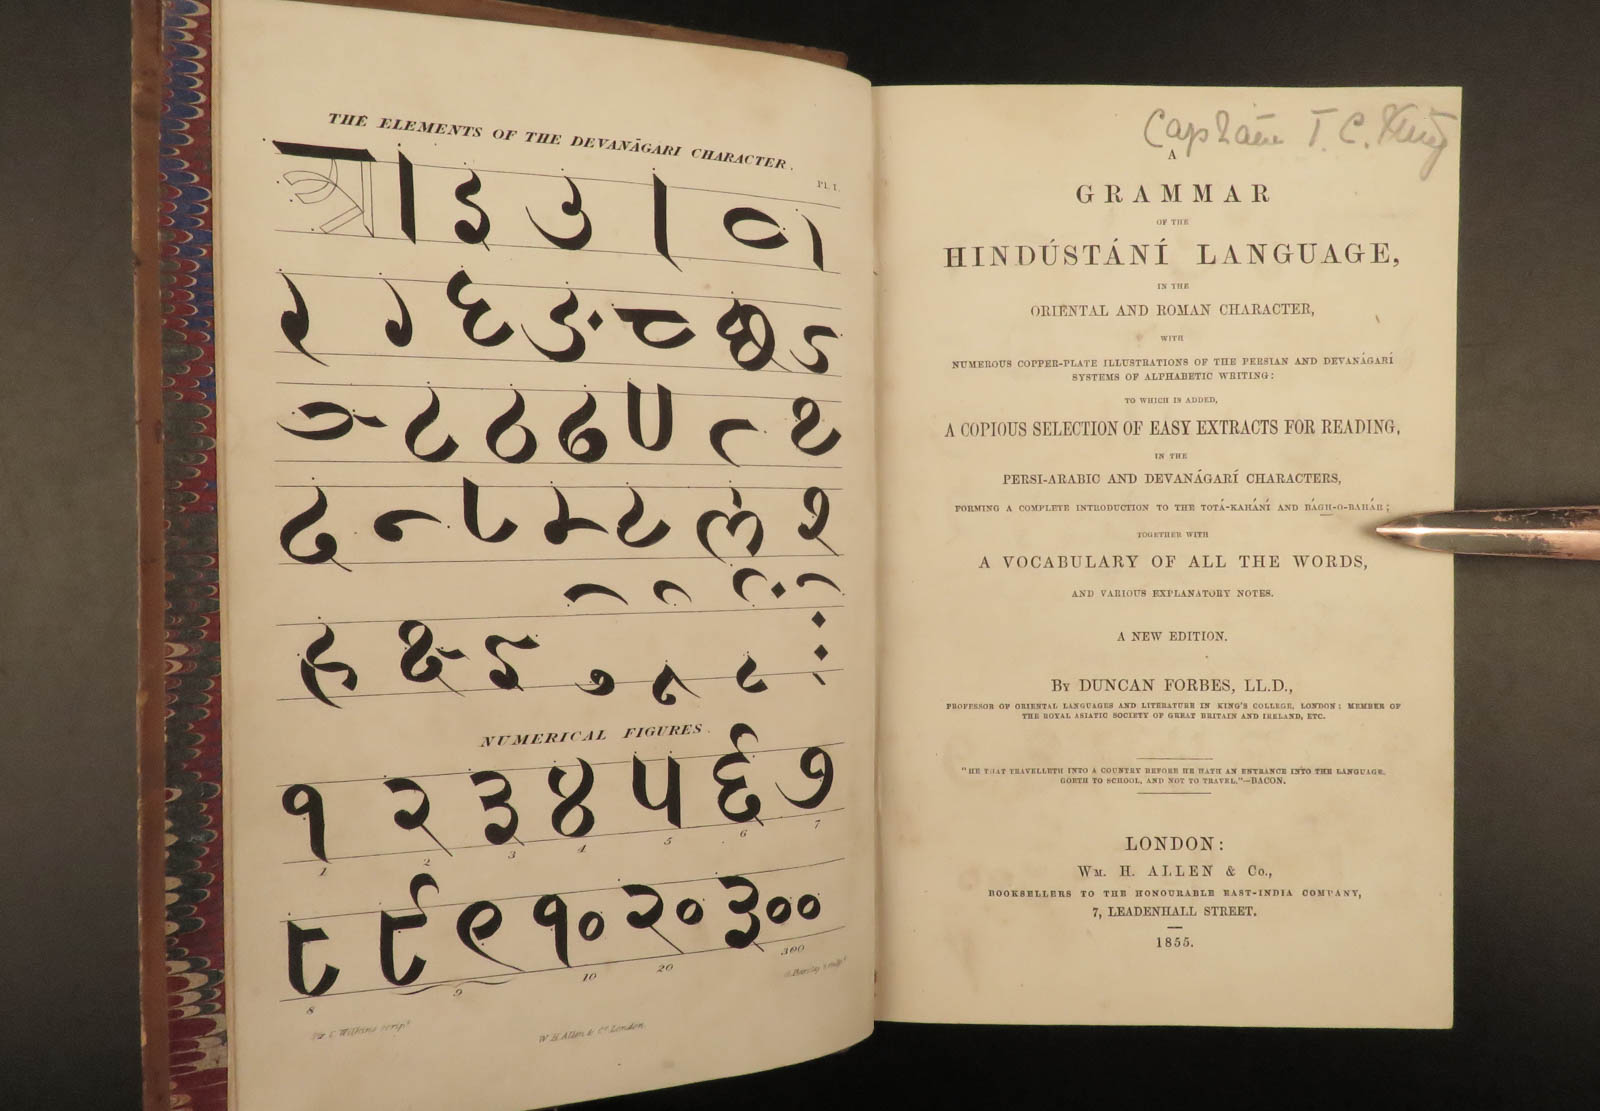 THE ELEMENTS OF THE DEVANĀGARI CHARACTER.
Pl. I.
NUMERICAL FIGURES.
१ २ ३ ४ ५ ६ ७
1 2 3 4 5 6 7
८ ९ १० २० ३००
8 9 10 20 300
Sir C Wilkins scrip.t
W. H. Allen & Co. London.
Captain T. C.
A
GRAMMAR
OF THE
HINDÚSTÁNÍ LANGUAGE,
IN THE
ORIENTAL AND ROMAN CHARACTER,
WITH
NUMEROUS COPPER-PLATE ILLUSTRATIONS OF THE PERSIAN AND DEVANÁGARÍ
SYSTEMS OF ALPHABETIC WRITING:
TO WHICH IS ADDED,
A COPIOUS SELECTION OF EASY EXTRACTS FOR READING,
IN THE
PERSI-ARABIC AND DEVANÁGARÍ CHARACTERS,
FORMING A COMPLETE INTRODUCTION TO THE TOTÁ-KAHÁNÍ AND BÁGH-O-BAHÁR;
TOGETHER WITH
A VOCABULARY OF ALL THE WORDS,
AND VARIOUS EXPLANATORY NOTES.
A NEW EDITION.
BY DUNCAN FORBES, LL.D.,
PROFESSOR OF ORIENTAL LANGUAGES AND LITERATURE IN KING'S COLLEGE, LONDON; MEMBER OF
THE ROYAL ASIATIC SOCIETY OF GREAT BRITAIN AND IRELAND, ETC.
"HE THAT TRAVELLETH INTO A COUNTRY BEFORE HE HATH AN ENTRANCE INTO THE LANGUAGE,
GOETH TO SCHOOL, AND NOT TO TRAVEL."—BACON.
LONDON:
WM. H. ALLEN & Co.,
BOOKSELLERS TO THE HONOURABLE EAST-INDIA COMPANY,
7, LEADENHALL STREET.
1855.